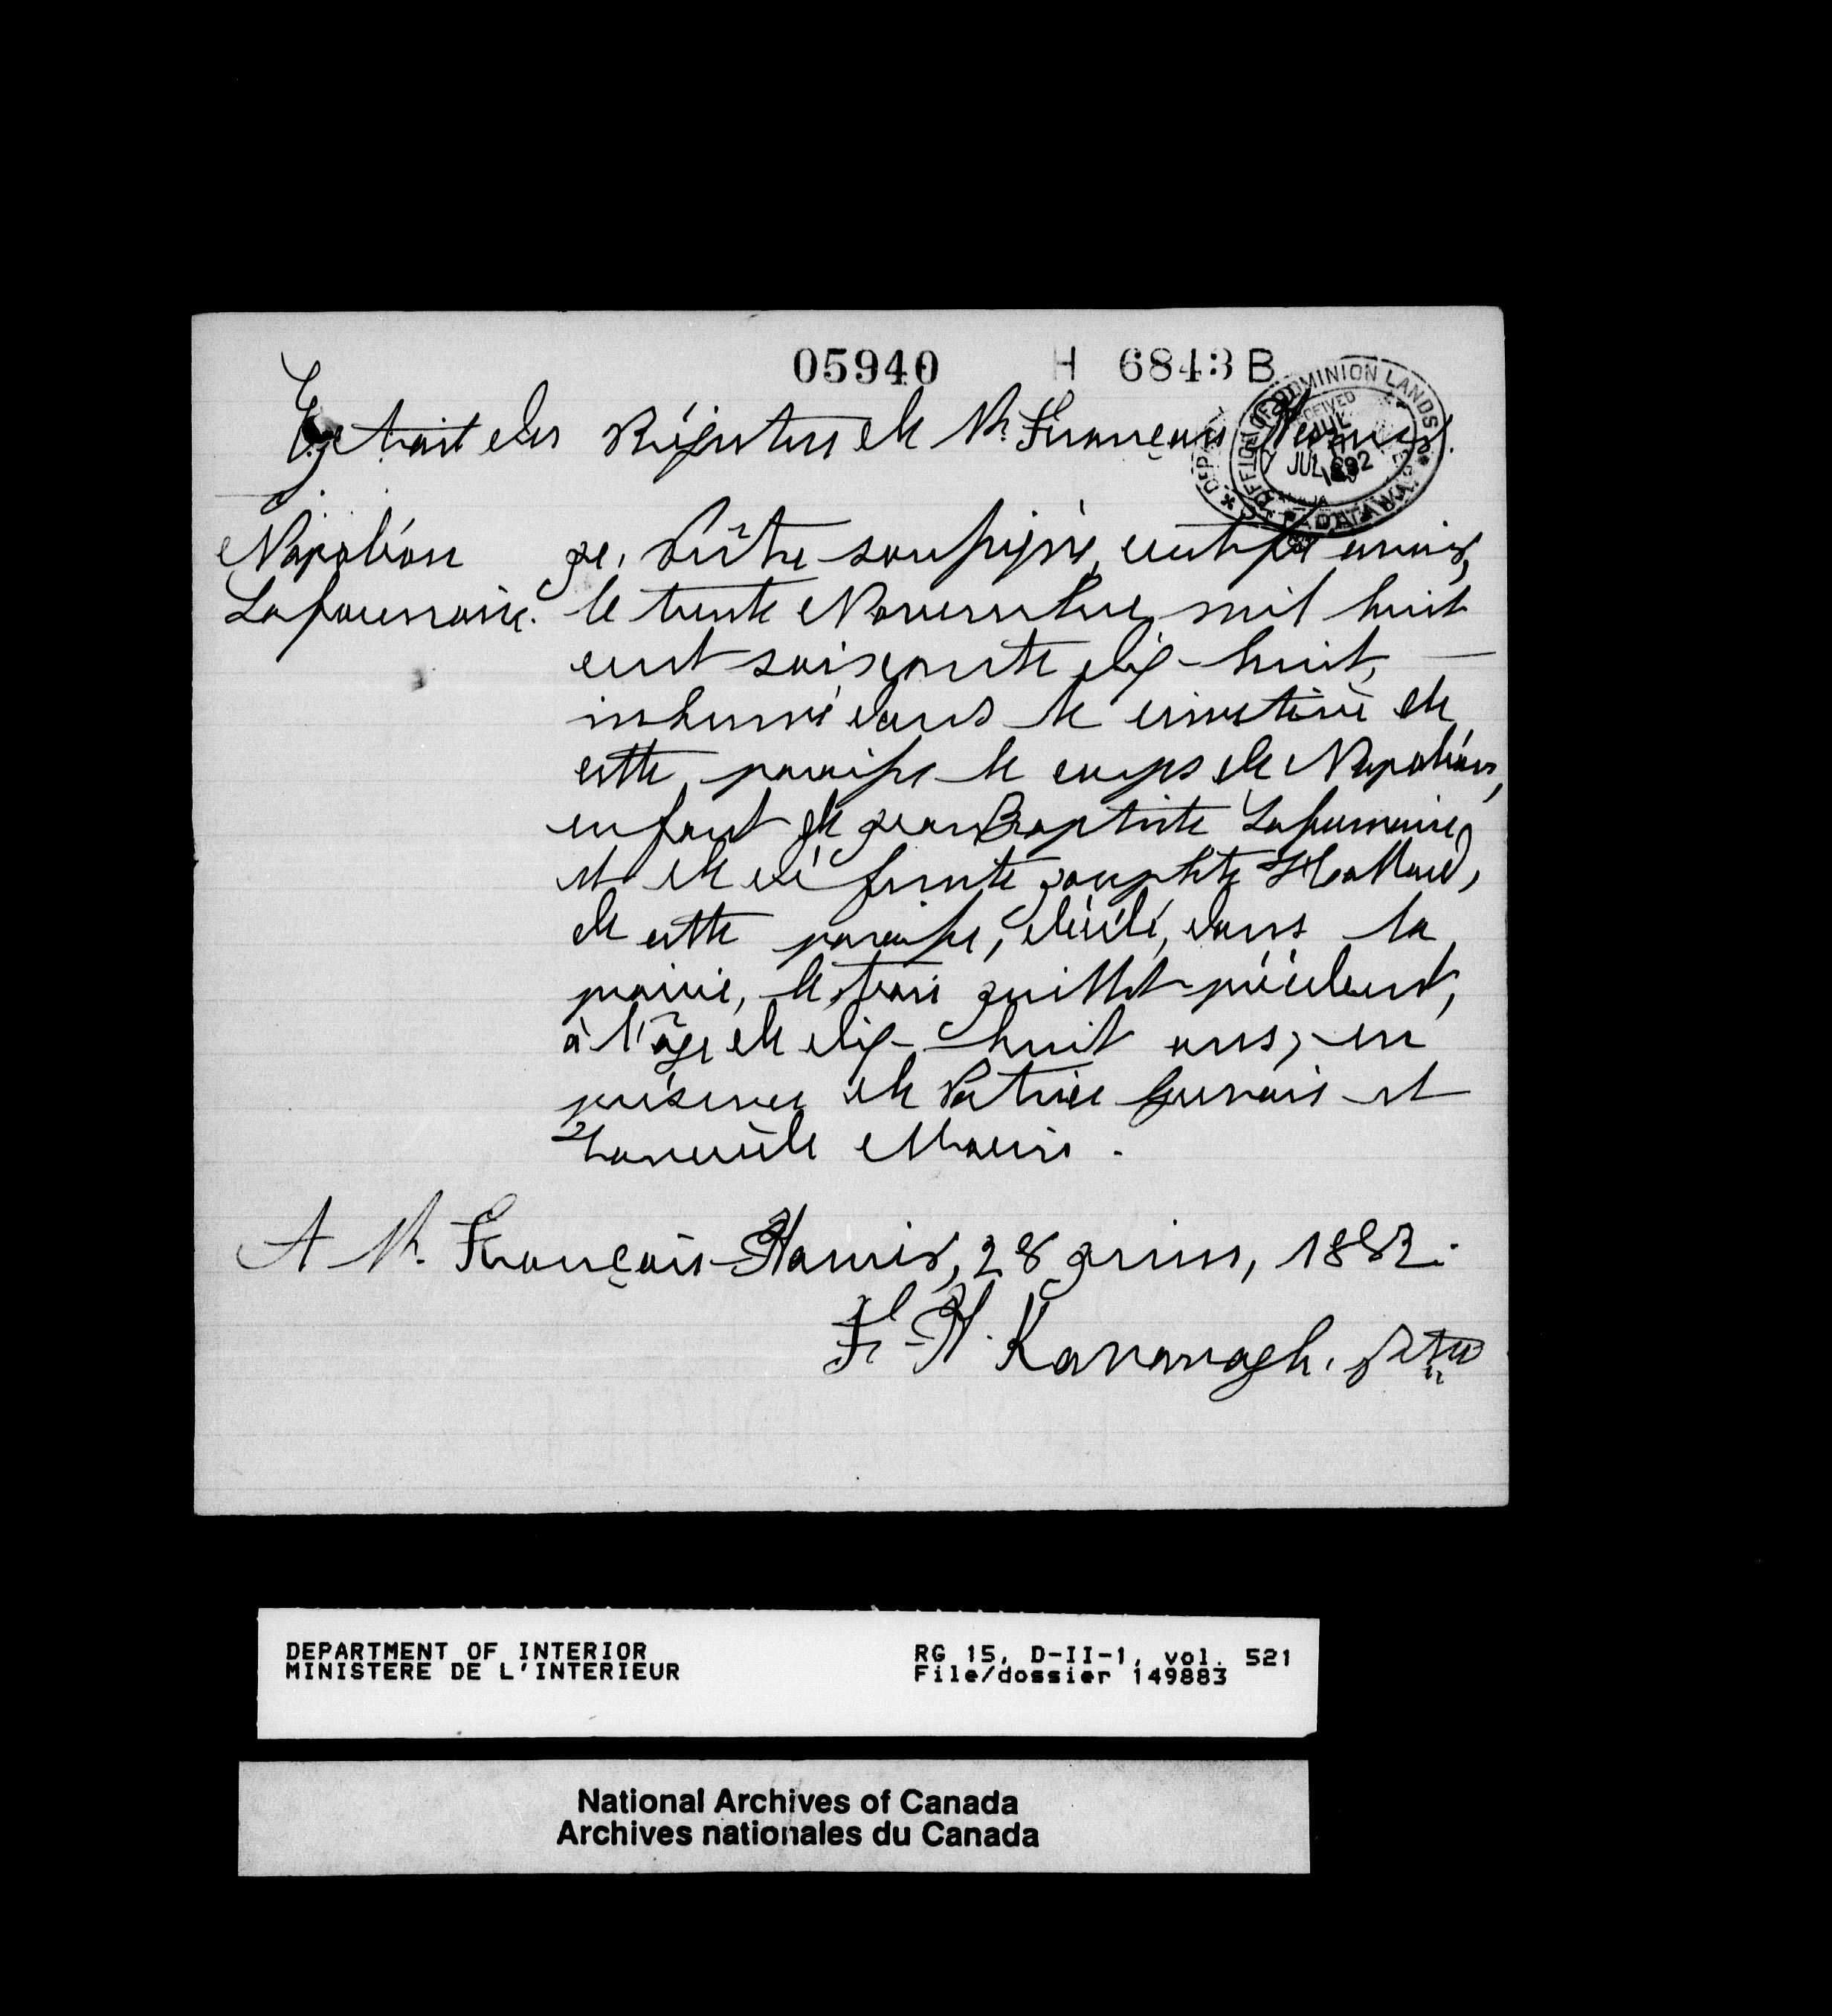 05940 H 6843 B
Extrait des Régistres de St. François Xavier.
DEPARTMENT OFFICE OF DOMINION LANDS
RECEIVED
JUL
1892
OTTAWA
Napoléon
Lafournaise.
Je, Prêtre soussigné, certifie avoir,
le trente Novembre mil huit
cent soixante dix-huit,
inhumé dans le cimetière de
cette paroisse le corps de Napoléon,
enfant de Jean Baptiste Lafournaise
et de défunte Josephte
de cette paroisse, décédé, dans la
prairie, le trois juillet précédent,
à l'âge de dix-huit ans; en
présence de Patrice Gervais et
A St. François-Xavier, 28 juin, 1882.
F. X. Kavanagh. Ptre
DEPARTMENT OF INTERIOR RG 15, D-II-1, vol. 521
MINISTERE DE L'INTERIEUR File/dossier 149883
National Archives of Canada
Archives nationales du Canada